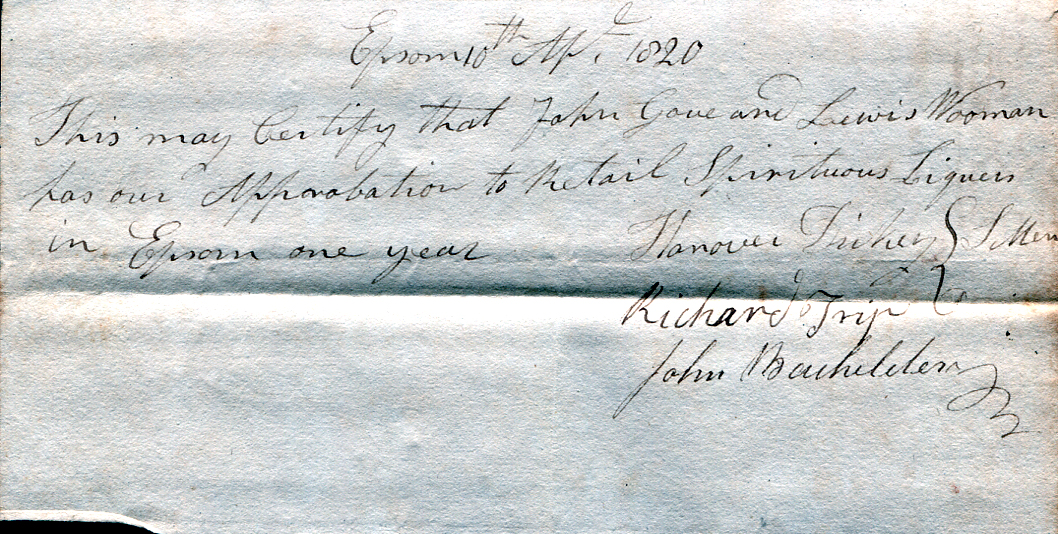 Epsom 10th Apl. 1820
This may Certify that John Gove and Lewis Wooman
has our Approbation to Retail Spirituous Liquers
in Epsom one year Hanover Dickey } S Men
Richard Tripp
John Bachelder